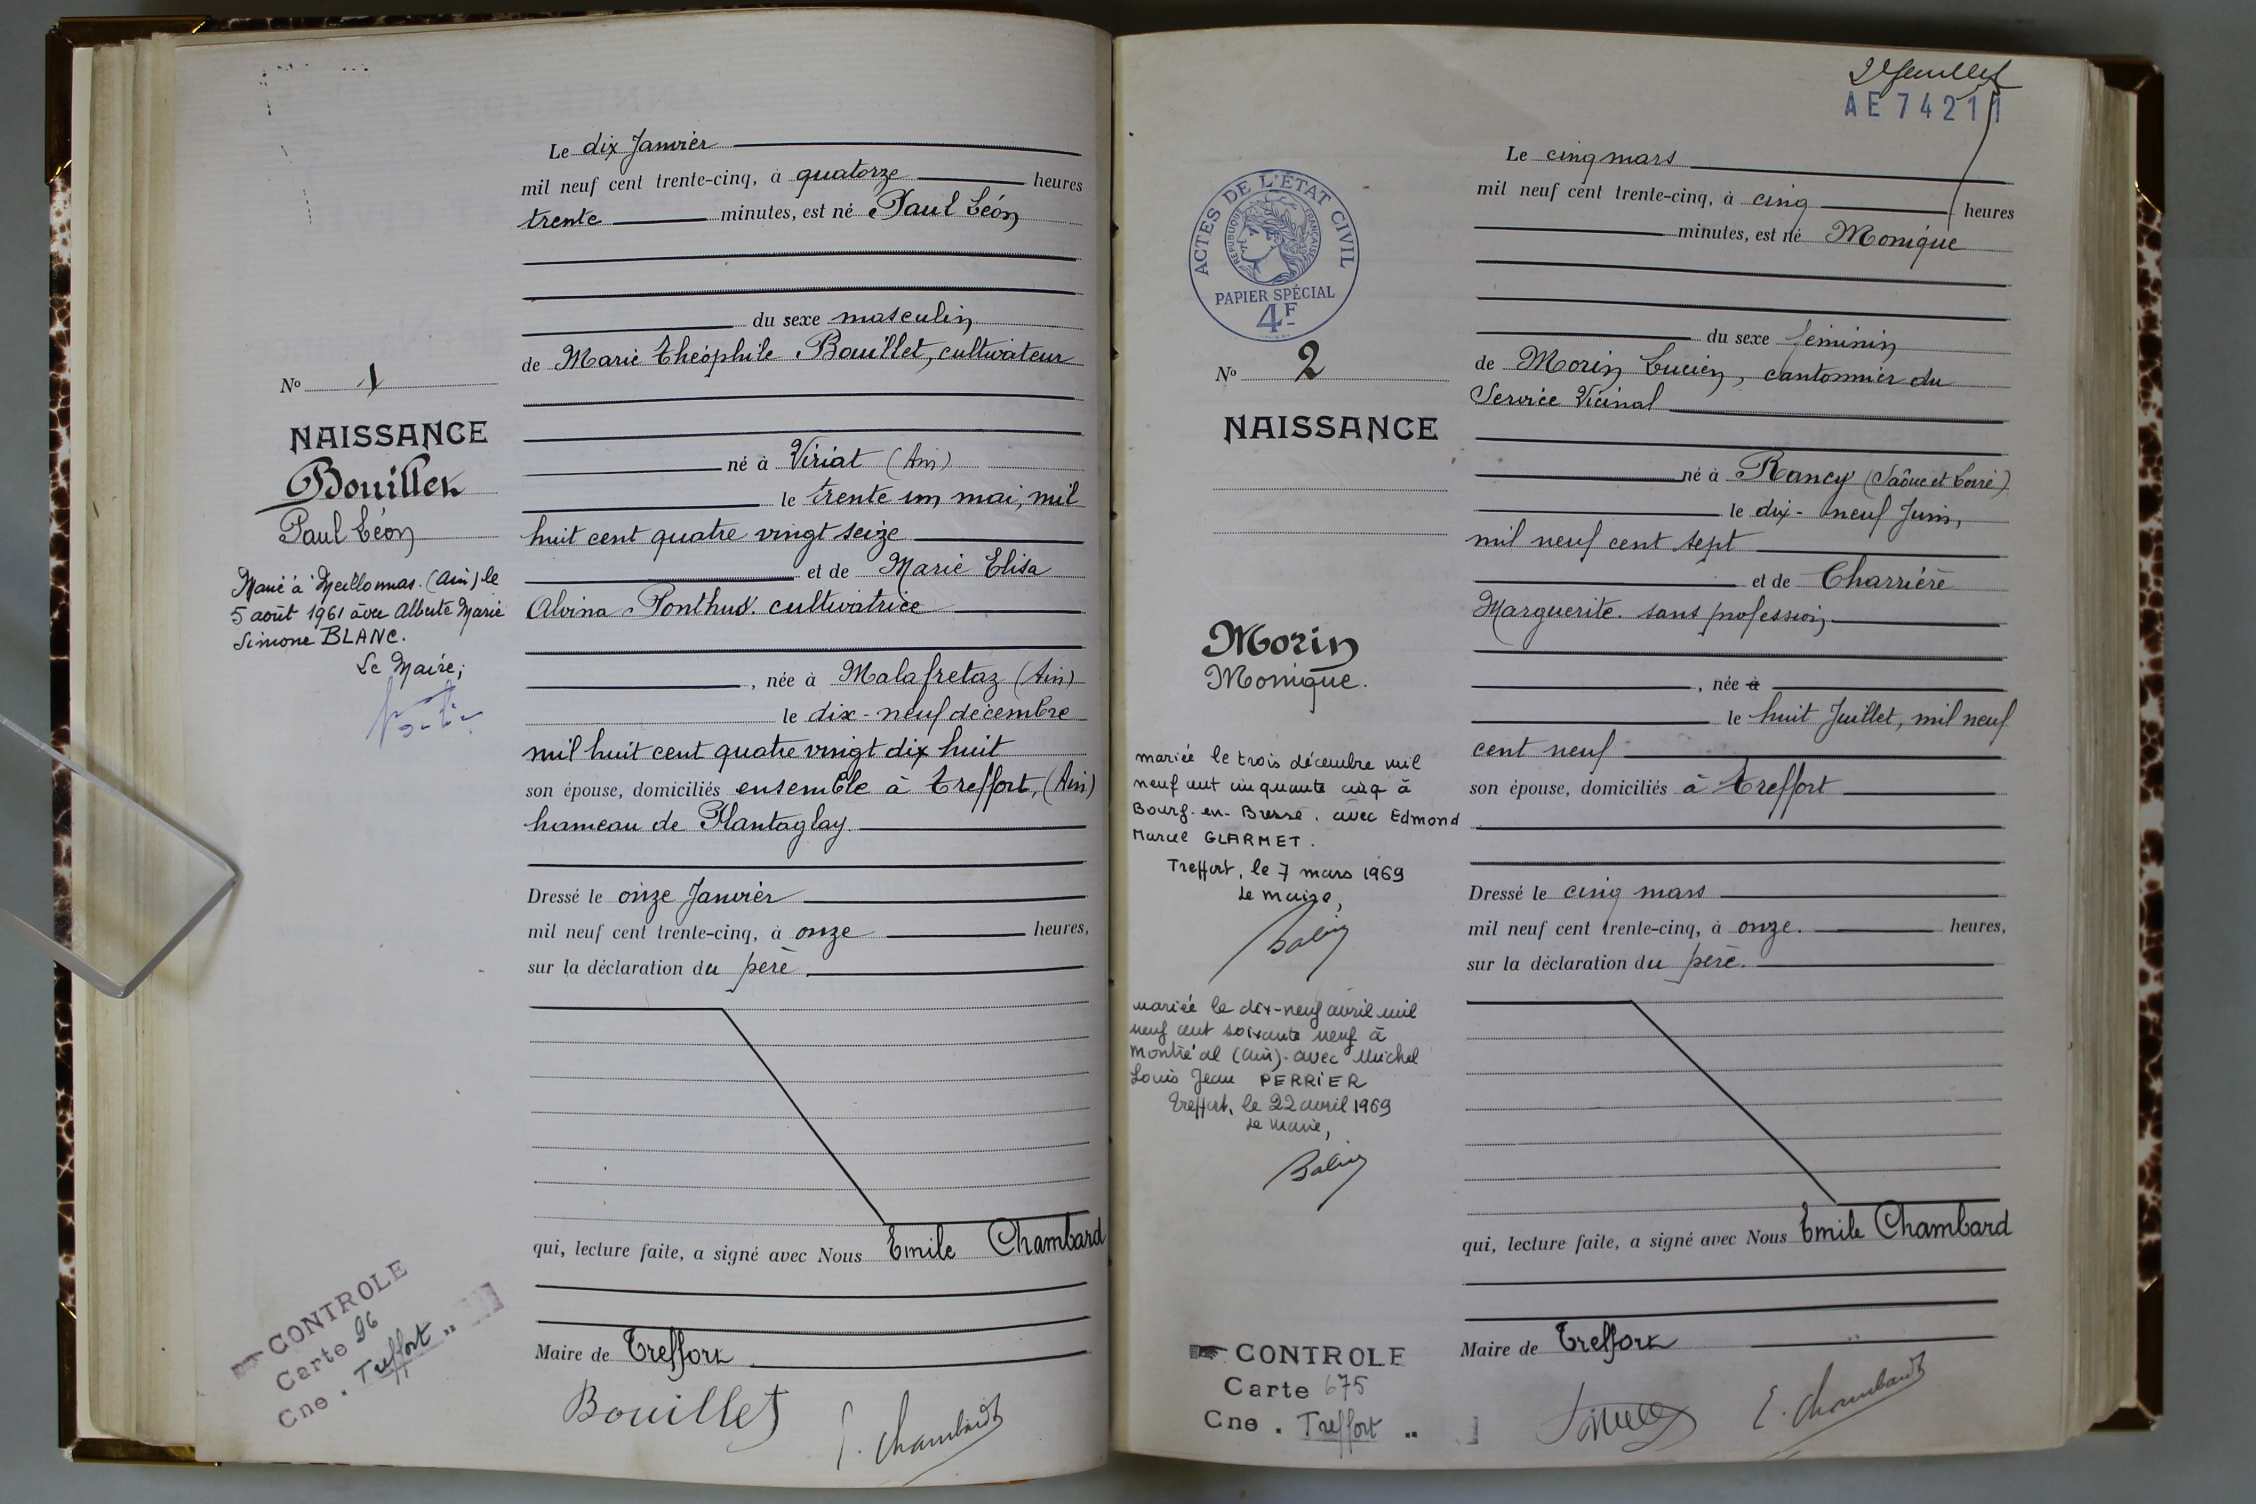 Le dix Janvier
mil neuf cent trente-cinq, à quatorze heures
trente minutes, est né Paul Léon
du sexe masculin
de Marie Théophile Bouillet, cultivateur
né à Viriat (Ain)
le trente un mai, mil
huit cent quatre vingt seize
et de Marie Elisa
Alvina Ponthus. cultivatrice
, née à Malafretaz (Ain)
le dix-neuf décembre
mil huit cent quatre vingt dix huit
son épouse, domiciliés ensemble à Treffort, (Ain)
hameau de Plantaglay
Dressé le onze Janvier
mil neuf cent trente-cinq, à onze heures,
sur la déclaration du père
qui, lecture faite, a signé avec Nous Emile Chambard
Maire de Treffort
Bouillet
E. Chambard
No 1
NAISSANCE
Bouillet
Paul Léon
Marié à Meillonnas. (Ain) le
5 août 1961 avec Alberte Marie
Simone BLANC.
Le Maire;
CONTROLE
Carte 26
Cne. Treffort "
2e feuillet
AE 74211
ACTES DE L'ÉTAT CIVIL
RÉPUBLIQUE FRANÇAISE
PAPIER SPÉCIAL
4F
No 2
NAISSANCE
Morin
Monique.
mariée le trois décembre mil
neuf cent cinquante cinq à
Bourg-en-Bresse. avec Edmond
Marcel GLARMET.
Treffort, le 7 mars 1969
Le maire,
mariée le dix-neuf avril mil
neuf cent soixante neuf à
Montréal (Ain)-avec Michel
Louis Jean PERRIER
Treffort, le 22 avril 1969
Le maire,
CONTROLE
Carte 675
Cne. Treffort "
Le cinq mars
mil neuf cent trente-cinq, à cinq heures
minutes, est né Monique
du sexe féminin
de Morin Lucien, cantonnier du
Service Vicinal
né à Rancy (Saône et Loire)
le dix-neuf Juin,
mil neuf cent sept
et de Charrière
Marguerite. sans profession
, née à
le huit Juillet, mil neuf
cent neuf
son épouse, domiciliés à Treffort
Dressé le cinq mars
mil neuf cent trente-cinq, à onze. heures,
sur la déclaration du père.
qui, lecture faite, a signé avec Nous Emile Chambard
Maire de Treffort
E. Chambard